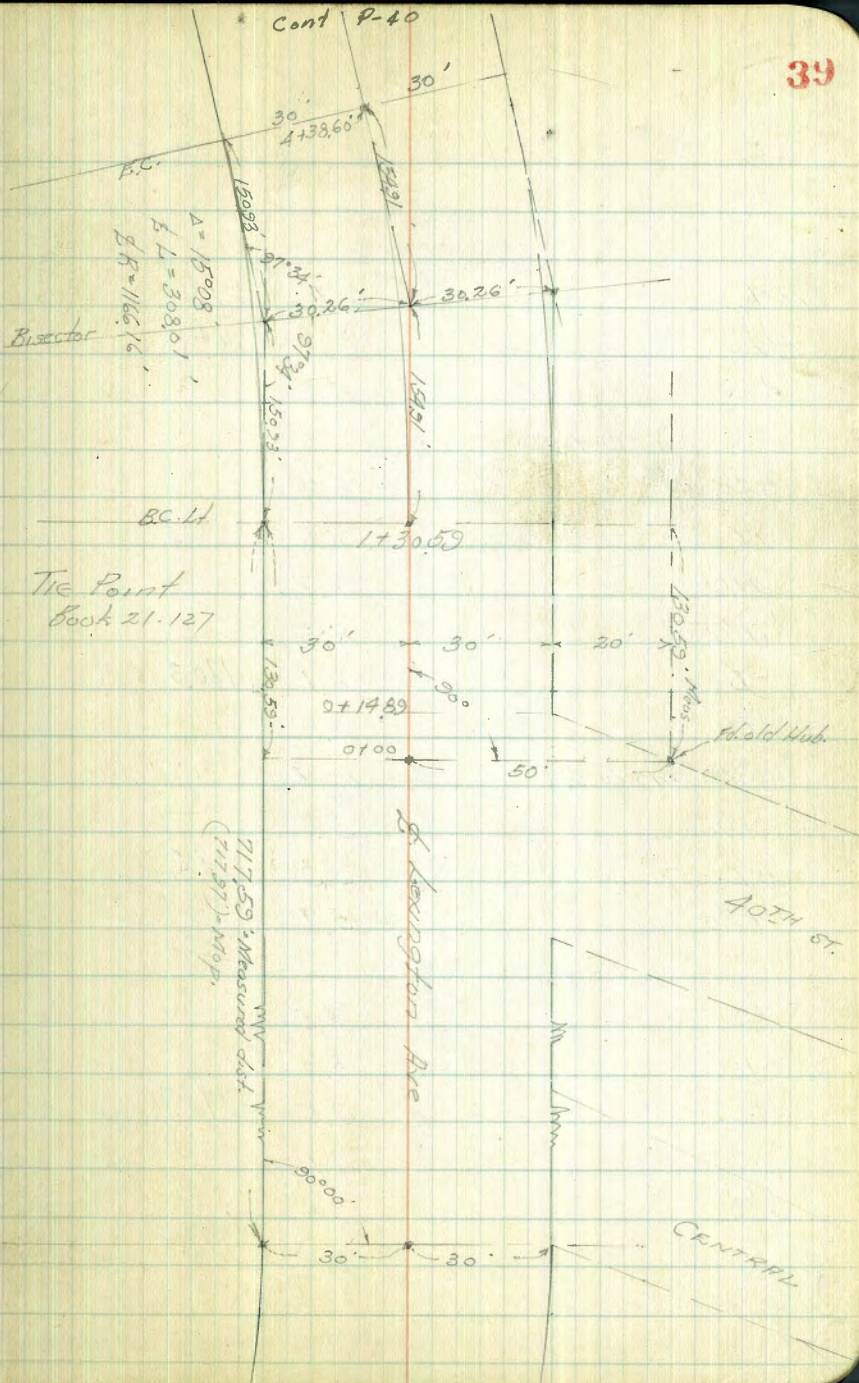 Cont P-40
39
30'
30'
4+38.60
E.C.
150.93'
154.91'
Δ = 15°08'
L = 308.01'
R = 1166.16'
97°34'
30.26'
30.26'
Bisector
97°34'
150.93'
154.91'
B.C. Lt
1+30.59
Tie Point
Book 21-127
30'
30'
20'
130.59' Meas
130.59'
90°
0+14.89
0+00
50'
Fd. old Hub.
Lexington Ave
717.59' Measured dist.
(717.97') Map.
40TH ST.
90°00'
30'
30'
CENTRAL